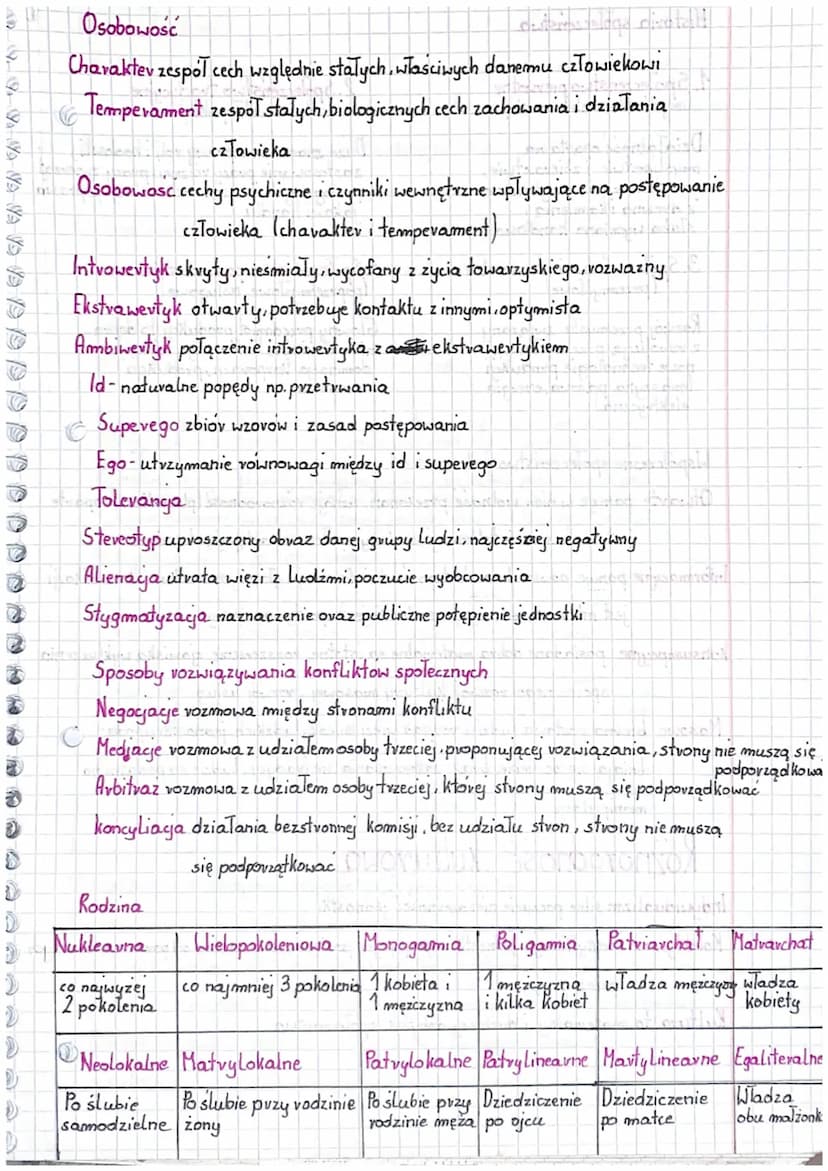 Osobowość
Charakter zespół cech względnie stałych, właściwych danemu człowiekowi
Temperament zespół stałych, biologicznych cech zachowania i działania
człowieka
Osobowość cechy psychiczne i czynniki wewnętrzne wpływające na postępowanie
człowieka (charakter i temperament)
Introwertyk skryty, nieśmiały, wycofany z życia towarzyskiego, rozważny
Ekstrawertyk otwarty, potrzebuje kontaktu z innymi, optymista
Ambiwertyk połączenie introwertyka z ekstrawertykiem
Id - naturalne popędy np. przetrwania
Superego zbiór wzorów i zasad postępowania
Ego - utrzymanie równowagi między id i superego
Tolerancja
Stereotyp uproszczony obraz danej grupy ludzi, najczęściej negatywny
Alienacja utrata więzi z ludźmi, poczucie wyobcowania
Stygmatyzacja naznaczenie oraz publiczne potępienie jednostki
Sposoby rozwiązywania konfliktów społecznych
Negocjacje rozmowa między stronami konfliktu
Medjacje rozmowa z udziałem osoby trzeciej, proponującej rozwiązania, strony nie muszą się
podporządkowa
Arbitraż rozmowa z udziałem osoby trzeciej, której strony muszą się podporządkować
koncyliacja działania bezstronnej komisji, bez udziału stron, strony nie muszą
się podporzątkować
Rodzina
Nuklearna Wielopokoleniowa Monogamia Poligamia Patriarchat Matrarchat
co najwyżej co najmniej 3 pokolenia 1 kobieta i 1 mężczyzna władza mężczyzny władza
2 pokolenia 1 mężczyzna i kilka kobiet kobiety
Neolokalne Matrylokalne Patrylokalne Patrylinearne Martylinearne Egaliteralne
Po ślubie Po ślubie przy rodzinie Po ślubie przy Dziedziczenie Dziedziczenie Władza
samodzielne żony rodzinie męża po ojcu po matce obu małżonk